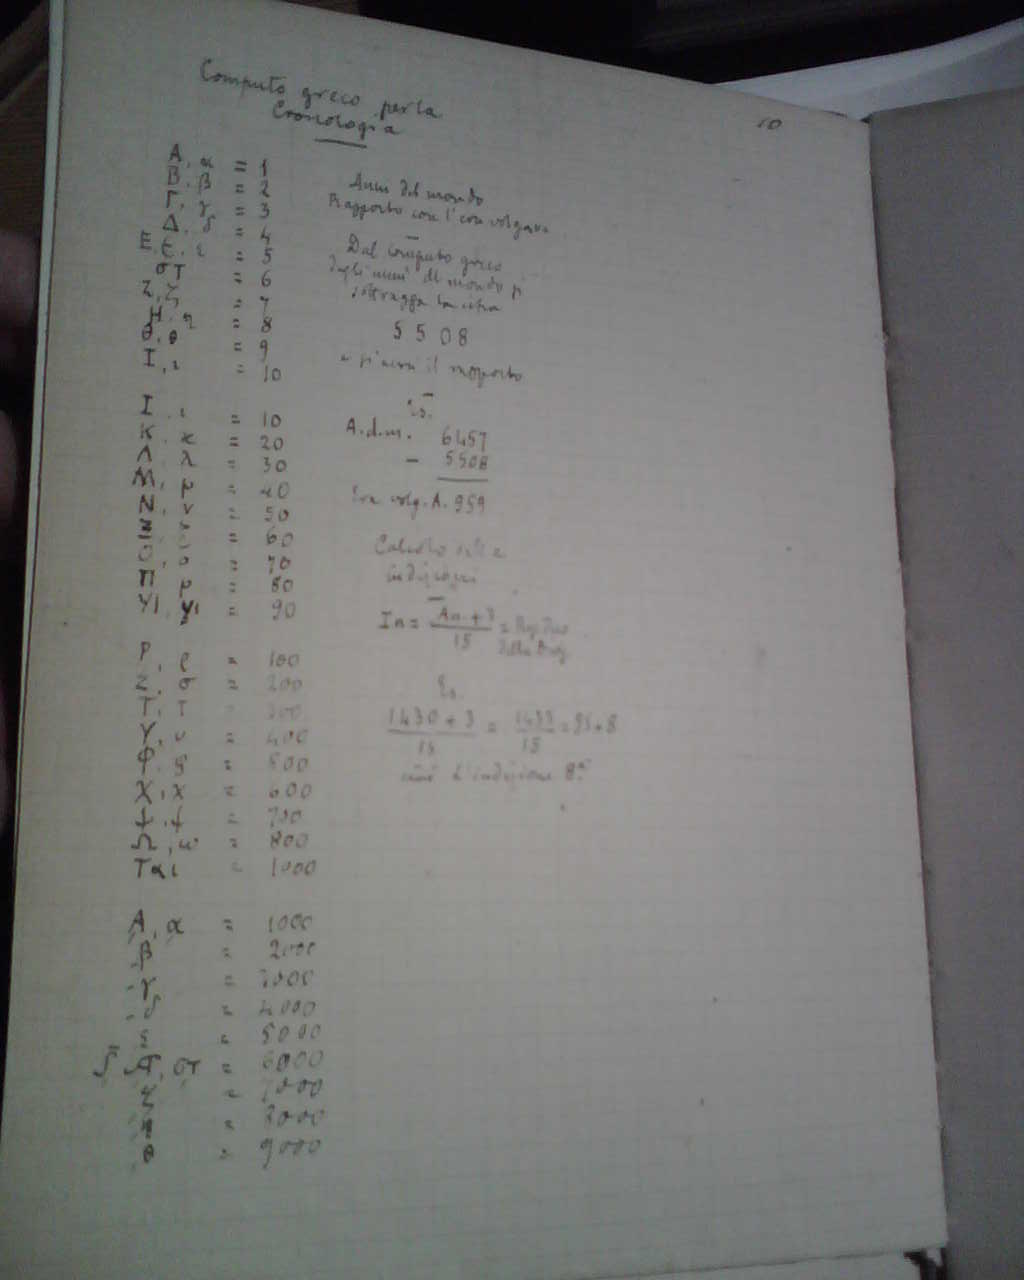 10
Computo greco per la
Cronologia
A, α = 1
B, β = 2
Γ, γ = 3
Δ, δ = 4
E, ε = 5
στ = 6
Z, ζ = 7
H, η = 8
Θ, θ = 9
I, ι = 10
I, ι = 10
K, κ = 20
Λ, λ = 30
M, μ = 40
N, ν = 50
Ξ, ξ = 60
O, ο = 70
Π = 80
= 90
P, ρ = 100
σ = 200
T, τ = 300
Y, υ = 400
Φ = 500
X, χ = 600
= 700
Ω, ω = 800
= 1000
A, α = 1000
β = 2000
γ = 3000
δ = 4000
ε = 5000
στ = 6000
ζ = 7000
η = 8000
θ = 9000
Anni del mondo
Rapporto con l'era volgare
Dal computo greco
degli anni del mondo si
sottragga la cifra
5508
e si avrà il rapporto
Es.
A.d.m. 6457
- 5508
Era volg. A. 959
Calcolo delle
indizioni
In = An + 3 / 15 =
Es.
1430 + 3 / 15 = 1433 / 15 = 95 + 8
L'indizione 8ª